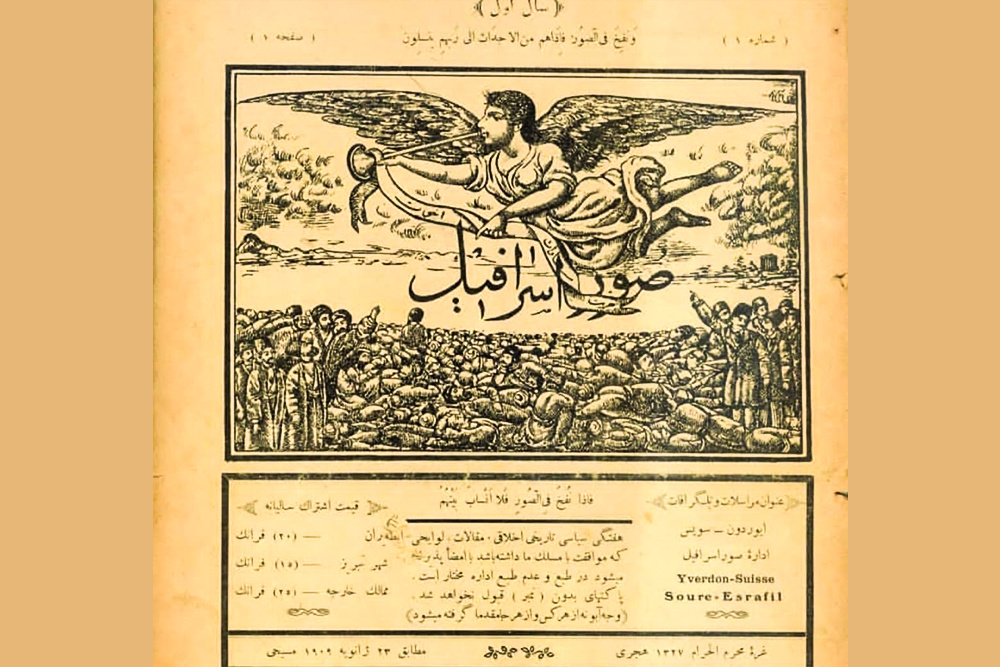 ( سال اول )
( شماره ۱ )
وَنُفِخَ فی الصّور فَاِذاهم من الاجداث الی ربهم ینسلون
( صفحه ۱ )
صور اسرافیل
عنوان مراسلات و تلگرافات
ایوردون — سویس
ادارهٔ صور اسرافیل
Yverdon-Suisse
Soure-Esrafil
فَاذا نُفِخَ فی الصّورِ فَلا اَنْسابَ بَیْنَهُمْ
هفتگی سیاسی تاریخی اخلاقی ، مقالات ، لوایحی
که موافقت با مسلک ما داشته باشد با امضا پذیرفته
میشود در طبع و عدم طبع اداره مختار است .
پاکتهای بدون ( تمبر ) قبول نخواهد شد .
( وجه آبونه از هر کس و از هر جا مقدما گرفته میشود )
قیمت اشتراک سالیانه
طهران — ( ۲۰ ) فرانک
شهر تبریز — ( ۱۵ ) فرانک
ممالک خارجه — ( ۲۵ ) فرانک
غرهٔ محرم الحرام ۱۳۲۷ هجری
مطابق ۲۳ ژانویه ۱۹۰۹ مسیحی